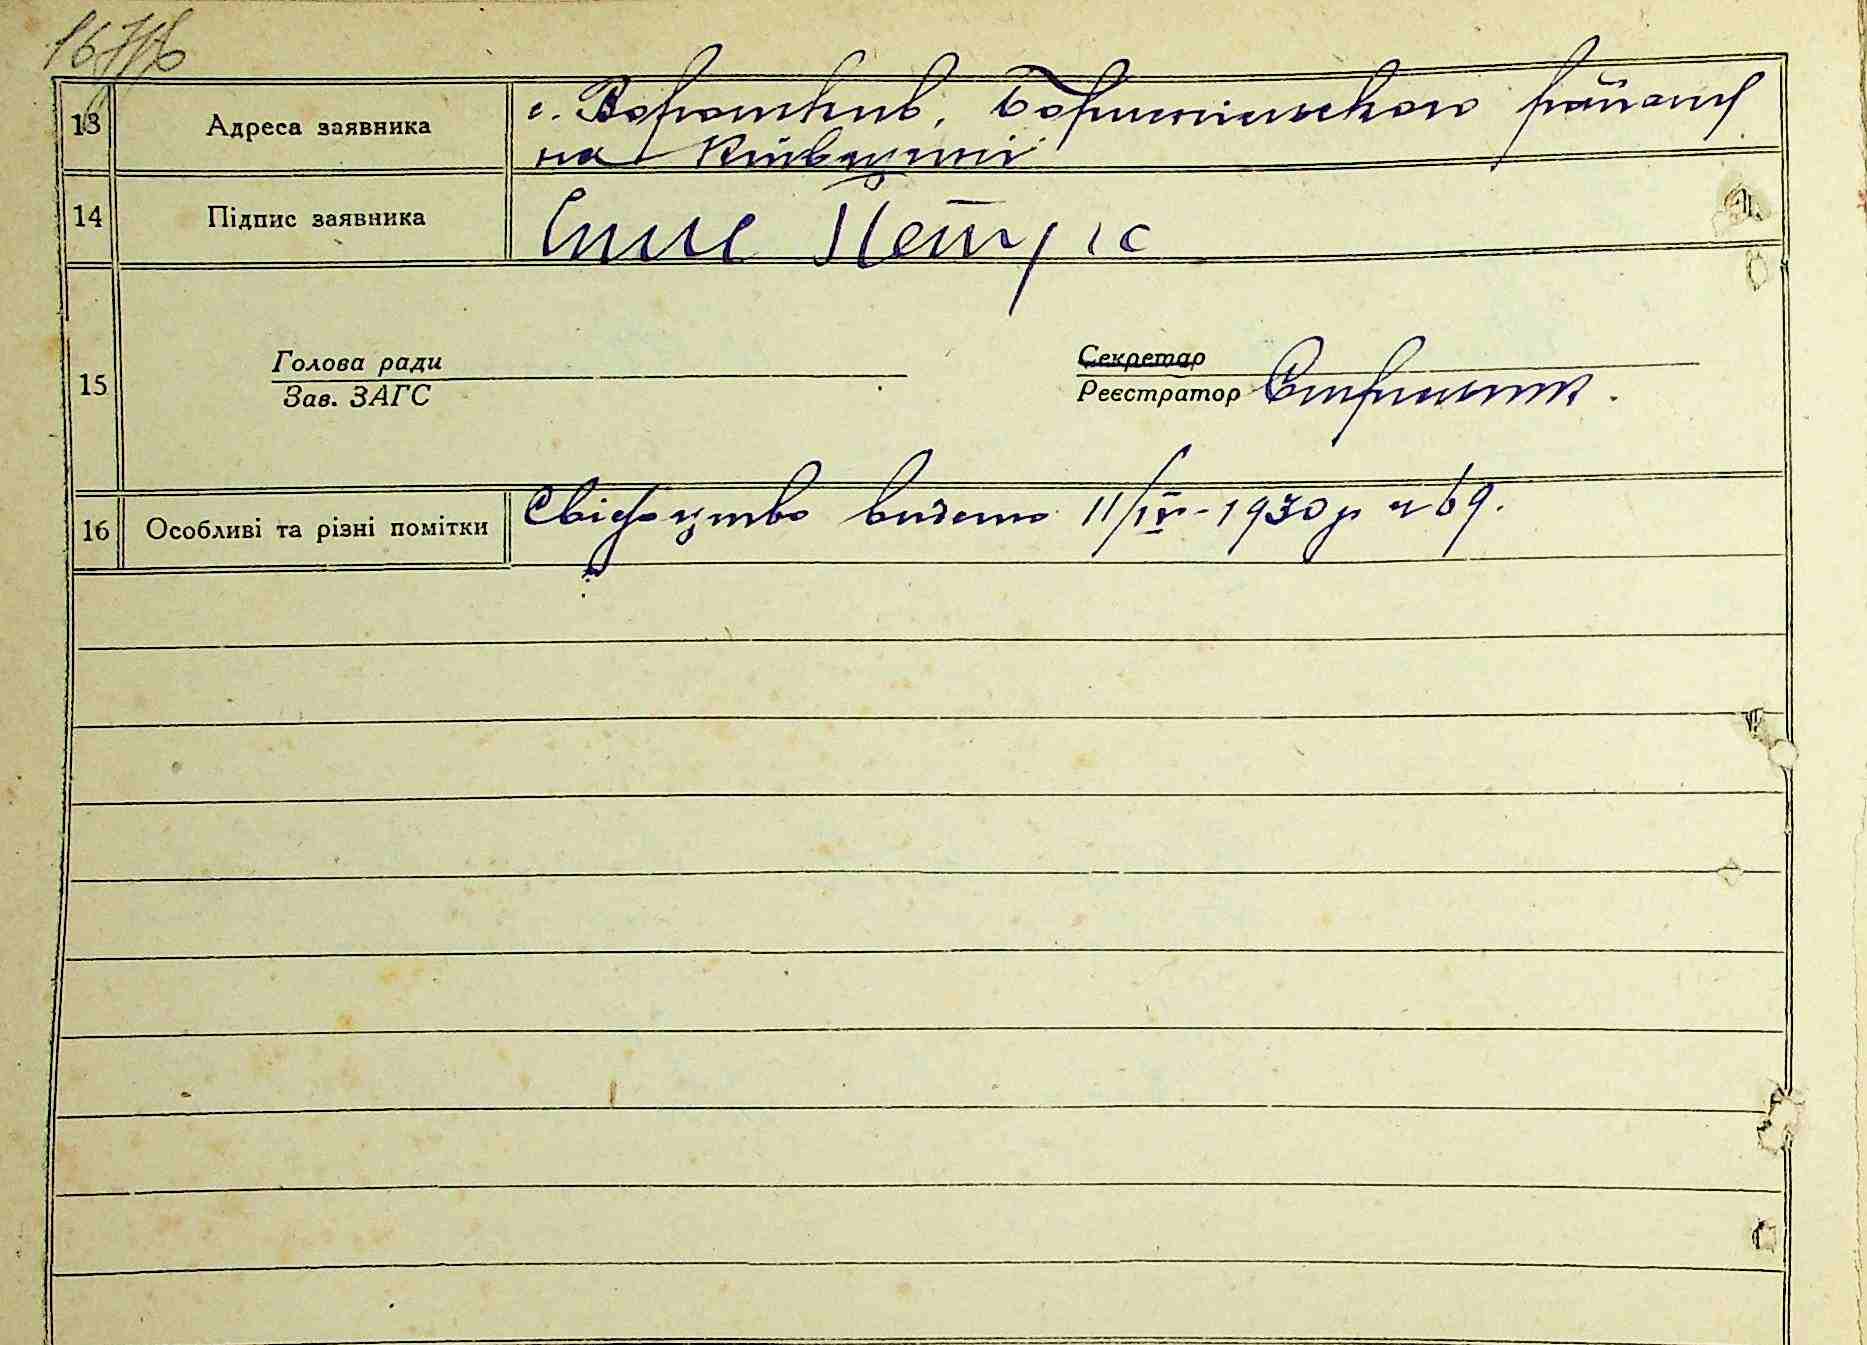 13 Адреса заявника с. Вороньків, Бориспільського району
на Київщині
14 Підпис заявника Петрус
15 Голова ради Секретар
Зав. ЗАГС Реєстратор
16 Особливі та різні помітки Свідоцтво видано 11/IV-1930 р № 69.